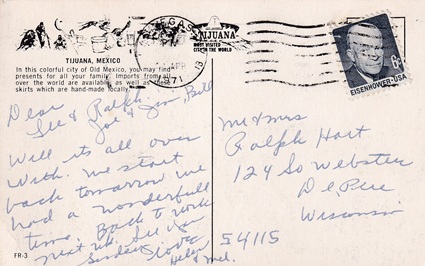 TIJUANA, MEXICO
In this colorful city of Old Mexico, you may find
presents for all your family. Imports from all
over the world are available as well as
skirts which are hand-made locally.
VEGAS
PM
APR
1971
TIJUANA
MOST VISITED
CITY IN THE WORLD
EISENHOWER·USA
6¢
Dear
Lee & Ralph
Joe & Jean, Bill
Well its all over
with. We start
back tomorrow we
had a wonderfull
time. Back to work
next wk. See you
Sunday
Love
Helen & Mel.
Mr & Mrs
Ralph Hart
124 So Webster
De Pere
Wisconsin
54115
FR-3